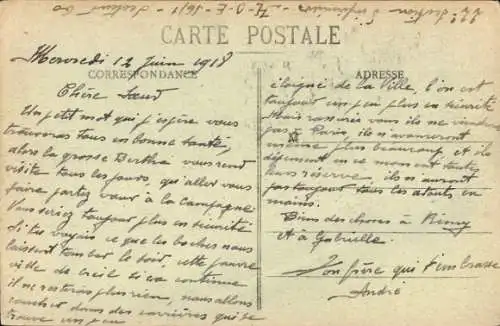 CARTE POSTALE
Mercredi 12 Juin 1918
CORRESPONDANCE
ADRESSE
Chère Sœur
Un petit mot qui j'espère vous
trouveras tous en bonne santé,
alors la grosse Berthe vous rend
visite tous les jours, qu'aller vous
faire partez vour à la Campagne
Vous seriez toujour plus en sécurité
Si tu voyais ce que les boches nous
laissent tomber le soir, cette pauvre
ville de Creil si ca continue
il ne restera plus rien, nous allons
coucher dans des carrières qui se
trouve un peu
éloigné de la Ville, l'on est
toujours un peu plus en sécurité
Mais rassures vous ils ne
à Paris, ils n'avanceront
même plus beaucoup et ils
dépensent en ce moment toute
leurs réserve, ils n'auront
pas toujours tous les atouts en
mains.
Bien des choses à Rémy
et à Gabrielle.
Ton frère qui t'embrasse
André